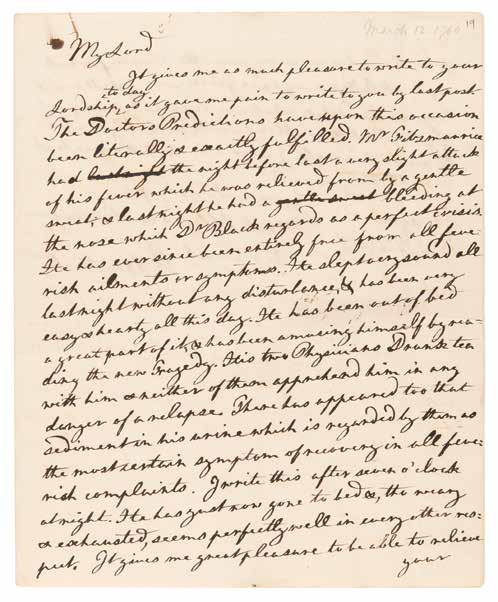 March 12 1760 19
My Lord
It gives me as much pleasure to write to your
to day
Lordship, as it gave me pain to write to you by last post
The Doctors Predictions have upon this occasion
been literally & exactly fulfilled. Mr Fitzmaurice
had last night the night before last a very slight attack
of his fever which he was relieved from by a gentle
sweat, & last night he had a gentle sweat bleeding at
the nose which Dr Black regards as a perfect crisis.
He has ever since been entirely free from all feve
rish ailments or symptoms. He slept very sound all
last night without any disturbance, & has been very
easy & hearty all this day. He has been out of bed
a great part of it, & has been amusing himself by rea-
ding the new Tragedy. His two Physicians Drank tea
with him & neither of them apprehend him in any
danger of a relapse. There has appeared too that
sediment in his urine which is regarded by them as
the most certain symptom of recovery in all feve-
rish complaints. I write this after seven o'clock
at night. He has just now gone to bed &, tho weary
& exhausted, seems perfectly well in every other res-
pect. It gives me great pleasure to be able to relieve
your